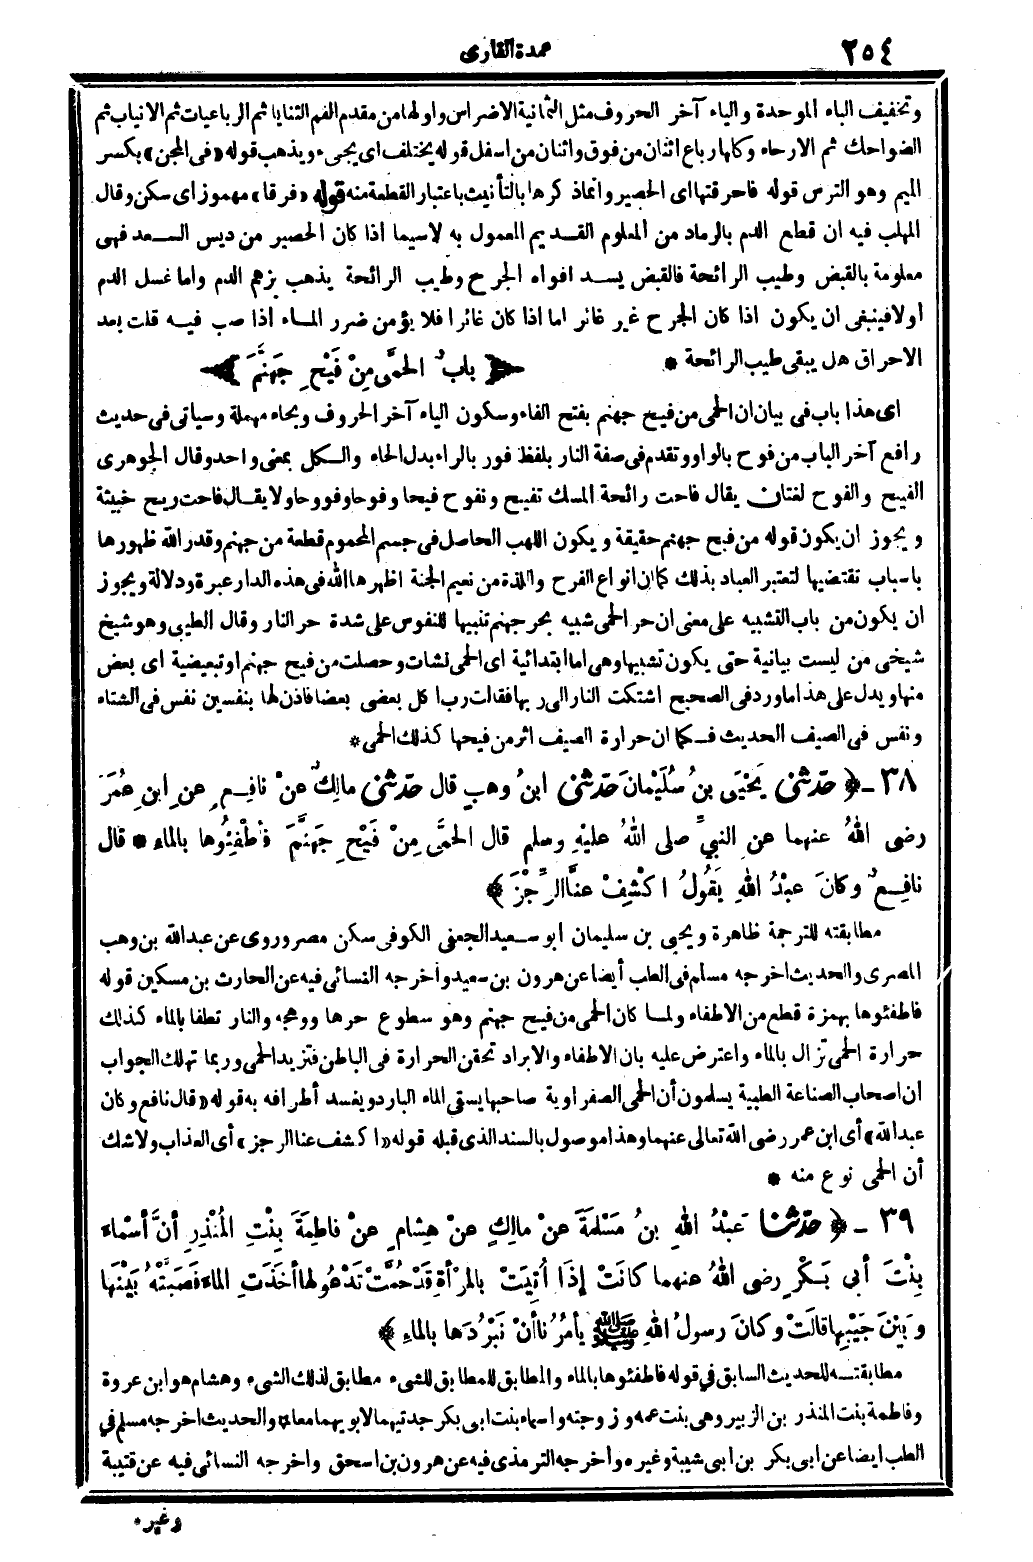 ٢٥٤
عمدة القارى
وتخفيف الباء الموحدة والياء آخر الحروف مثل الثمانية الاضراس واولها من مقدم الفم الثنايا ثم الرباعيات ثم الانياب ثم
الضواحك ثم الارحاء وكلها رباع اثنان من فوق واثنان من اسفل قوله يختلف اى يجىء ويذهب قوله «فى المجن» بكسر
الميم وهو الترس قوله فاحرقتها اى الحصير وانما ذكرها بالتأنيث باعتبار القطعة منه قوله «فرقا» مهموز اى سكن وقال
المهلب فيه ان قطع الدم بالرماد من المعلوم القديم المعمول به لاسيما اذا كان الحصير من ديس السعد فهى
معلومة بالقبض وطيب الرائحة فالقبض يسد افواه الجرح وطيب الرائحة يذهب بزهم الدم واما غسل الدم
اولا فينبغى ان يكون اذا كان الجرح غير غائر اما اذا كان غائرا فلا يؤمن ضرر الماء اذا صب فيه قلت بعد
الاحراق هل يبقى طيب الرائحة *
﴿ بابٌ الحُمَّى مِنْ فَيْحِ جَهَنَّمَ ﴾
اى هذا باب فى بيان ان الحمى من فيح جهنم بفتح الفاء وسكون الياء آخر الحروف وبحاء مهملة وسياتى فى حديث
رافع آخر الباب من فوح بالواو وتقدم فى صفة النار بلفظ فور بالراء بدل الحاء والكل بمعنى واحد وقال الجوهرى
الفيح والفوح لغتان يقال فاحت رائحة المسك تفيح وتفوح فيحا وفوحا وفووحا ولا يقال فاحت ريح خبيثة
ويجوز ان يكون قوله من فيح جهنم حقيقة ويكون اللهب الحاصل فى جسم المحموم قطعة من جهنم وقدر الله ظهورها
باسباب تقتضيها لتعتبر العباد بذلك كما ان انواع الفرح واللذة من نعيم الجنة اظهرها الله فى هذه الدار عبرة ودلالة ويجوز
ان يكون من باب التشبيه على معنى ان حر الحمى شبيه بحر جهنم تنبيها للنفوس على شدة حر النار وقال الطيبى وهو شيخ
شيخى من ليست بيانية حتى يكون تشبيها وهى اما ابتدائية اى الحمى نشات وحصلت من فيح جهنم او تبعيضية اى بعض
منها ويدل على هذا ما ورد فى الصحيح اشتكت النار الى ربها فقالت رب اكل بعضى بعضا فاذن لها بنفسين نفس فى الشتاء
ونفس فى الصيف الحديث فكما ان حرارة الصيف اثر من فيحها كذلك الحمى *
٣٨ ـ ﴿ حَدَّثَنى يَحْيَى بنُ سُلَيْمانَ حَدَّثَنى ابنُ وهبٍ قال حَدَّثَنى مالِكٌ عنْ نافِعٍ عنِ ابنِ عُمَرَ
رضى اللهُ عنهما عنِ النبيِّ صلى اللهُ عليْهِ وسلم قال الحُمَّى مِنْ فَيْحِ جَهَنَّمَ فأطْفِئُوها بالماءِ * قال
نافِعٌ وكانَ عبْدُ اللهِ يَقُولُ اكْشِفْ عنَّا الرِّجْزَ ﴾
مطابقته للترجمة ظاهرة ويحيى بن سليمان ابو سعيد الجعفى الكوفى سكن مصر وروى عن عبد الله بن وهب
المصرى والحديث اخرجه مسلم فى الطب أيضا عن هرون بن سعيد وأخرجه النسائى فيه عن الحارث بن مسكين قوله
فاطفئوها بهمزة قطع من الاطفاء ولما كان الحمى من فيح جهنم وهو سطوع حرها ووهجه والنار تطفا بالماء كذلك
حرارة الحمى تزال بالماء واعترض عليه بان الاطفاء والابراد تحقن الحرارة فى الباطن فتزيد الحمى وربما تهلك الجواب
ان اصحاب الصناعة الطبية يسلمون أن الحمى الصفراوية صاحبها يسقى الماء البارد ويغسد أطرافه به قوله «قال نافع وكان
عبد الله» أى ابن عمر رضى الله تعالى عنهما وهذا موصول بالسند الذى قبله قوله «اكشف عنا الرجز» أى العذاب ولا شك
أن الحمى نوع منه *
٣٩ ـ ﴿ حَدَّثَنا عَبْدُ اللهِ بنُ مَسْلَمَةَ عنْ مالِكٍ عنْ هِشامٍ عنْ فاطِمَةَ بِنْتِ المُنْذِرِ أنَّ أسْماءَ
بِنْتَ أبي بَكْرٍ رضى اللهُ عنهما كانَتْ إذَا أُتِيَتْ بالمَرْأةِ قَدْ حُمَّتْ تَدْعُو لها أخَذَتِ الماءَ فَصَبَّتْهُ بَيْنَها
وَبَيْنَ جَيْبِها قالَتْ وكانَ رسولُ اللهِ ﷺ يأمُرُنا أنْ نَبْرُدَها بالماءِ ﴾
مطابقته للحديث السابق في قوله فاطفئوها بالماء والمطابق للمطابق للشىء مطابق لذلك الشىء وهشام هو ابن عروة
وفاطمة بنت المنذر بن الزبير وهى بنت عمه وزوجته واسماء بنت ابى بكر جدتهما لابويهما معا والحديث اخرجه مسلم في
الطب ايضا عن ابى بكر بن ابى شيبة وغيره واخرجه الترمذى فيه عن هرون بن اسحق واخرجه النسائى فيه عن قتيبة
وغيره